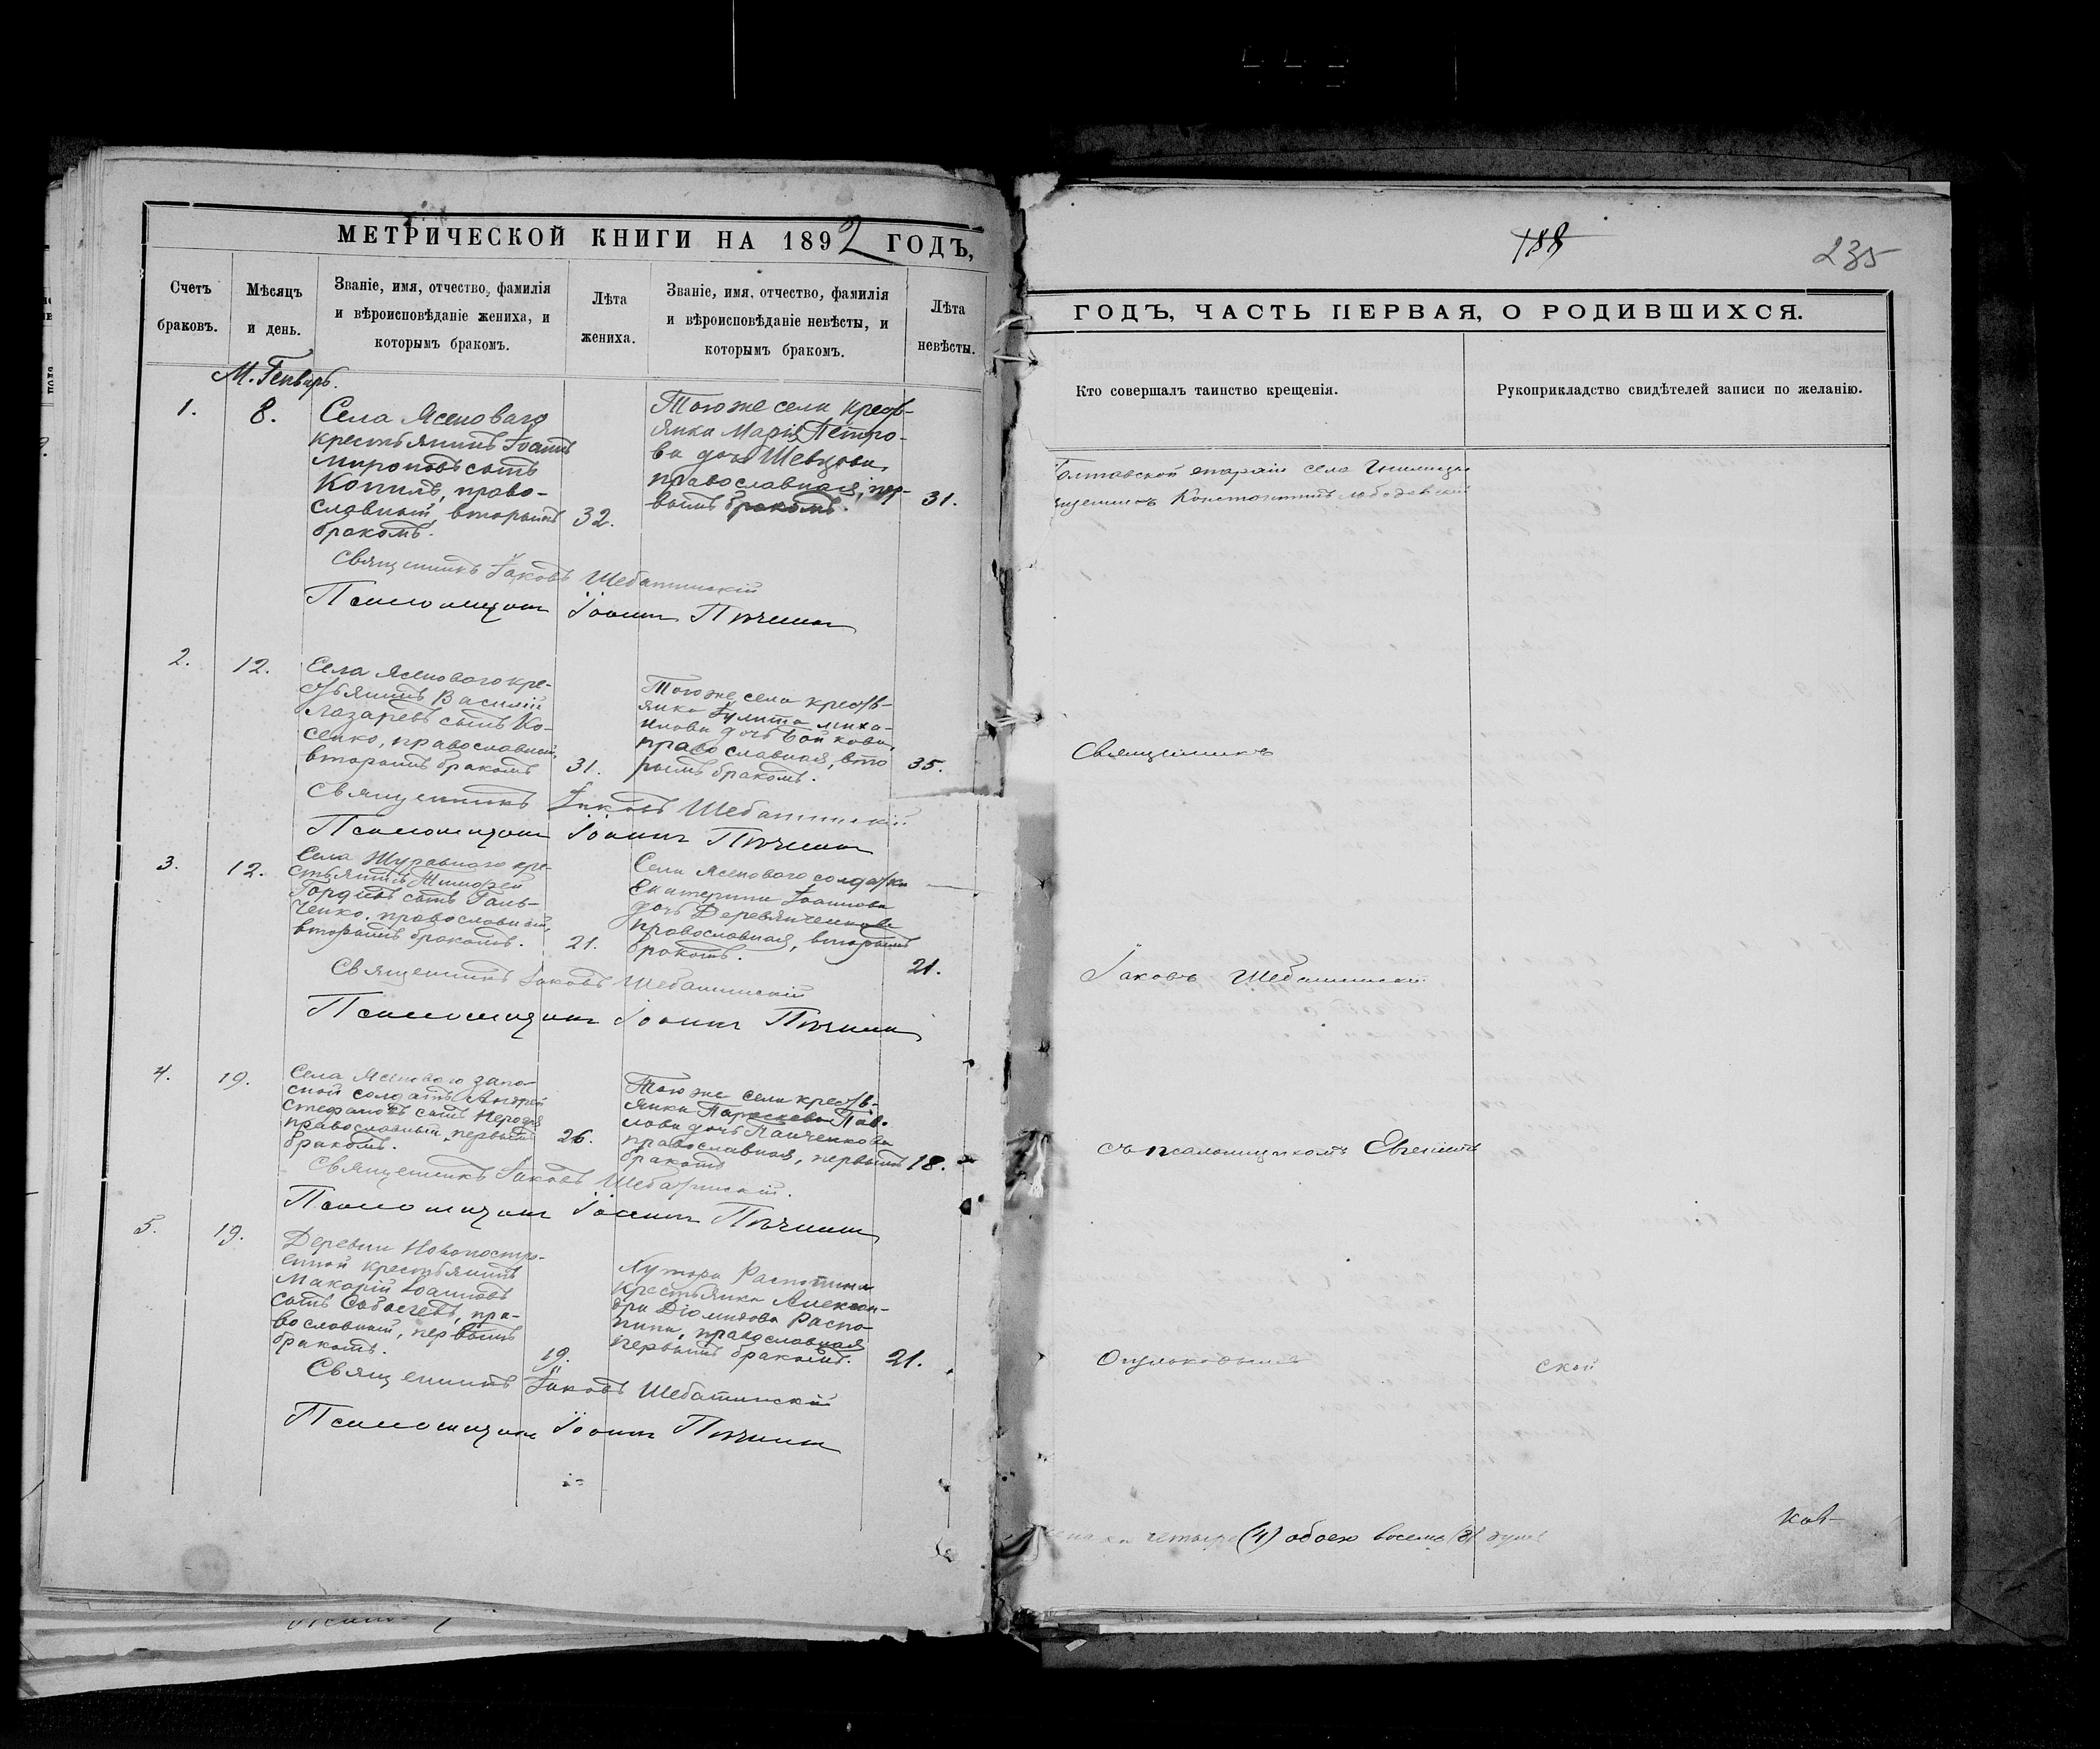 МЕТРИЧЕСКОЙ КНИГИ НА 1892 ГОДЪ,
Счетъ браковъ.
Мѣсяцъ и день.
Званіе, имя, отчество, фамилія
и вѣроисповѣданіе жениха, и
которымъ бракомъ.
Лѣта жениха.
Званіе, имя, отчество, фамилія
и вѣроисповѣданіе невѣсты, и
которымъ бракомъ.
Лѣта невѣсты.
М. Генварь.
1.
8.
Села Ясеноваго
крестьянинъ Іоаннъ
Мироновъ сынъ
Копилъ, право-
славный, вторымъ
бракомъ.
32.
Того же села крестъ-
янка Марія Петро-
ва дочь Шевцова,
православная, пер-
вымъ бракомъ.
31.
Священникъ Іаковъ Шебатинскій
Псаломщикъ Іоаннъ
2.
12.
Села Ясеноваго кре-
стьянинъ Василій
Лазаревъ сынъ Ко-
сенко, православный,
вторымъ бракомъ
31.
Того же села крестъ-
янка Іулита Миха-
илова дочь Бойкова,
православная, вто
рымъ бракомъ.
35.
Священникъ Іаковъ Шебатинскій
Псаломщикъ Іоаннъ
3.
12.
Села Журавнаго кре-
стьянинъ Тимофей
Гордіевъ сынъ Галь-
ченко, православный,
вторымъ бракомъ.
21.
Села Ясеноваго солдатка
Екатерина Іоаннова
дочь Деревянченкова
православная, вторымъ
бракомъ.
21.
Священникъ Іаковъ Шебатинскій
Псаломщикъ Іоаннъ
4.
19.
Села Ясеноваго запа-
сной солдатъ Андрей
Стефановъ сынъ
православный, первымъ
бракомъ.
26.
Того же села крестъ-
янка Параскева Пав-
лова дочь Панченкова
православная, первымъ
бракомъ
18.
Священникъ Іаковъ Шебатинскій.
Псаломщикъ Іоаннъ
5.
19.
Деревни Новопостро-
енной крестьянинъ
Макарій Іоанновъ
сынъ пра-
вославный, первымъ
бракомъ.
19.
Хутора
крестьянка Алексан-
дра Діомидова Распо-
пина, православная
первымъ бракомъ.
21.
Священникъ Іаковъ Шебатинскій
Псаломщикъ Іоаннъ
188
235
ГОДЪ, ЧАСТЬ ПЕРВАЯ, О РОДИВШИХСЯ.
Кто совершалъ таинство крещенія.
Рукоприкладство свидѣтелей записи по желанію.
Полтавской епархіи села
Константинъ
Священникъ
Іаковъ Шебатинскій
съ псаломщикомъ Евгеніемъ
ской
четыре (4) обоего восемь (8) душъ